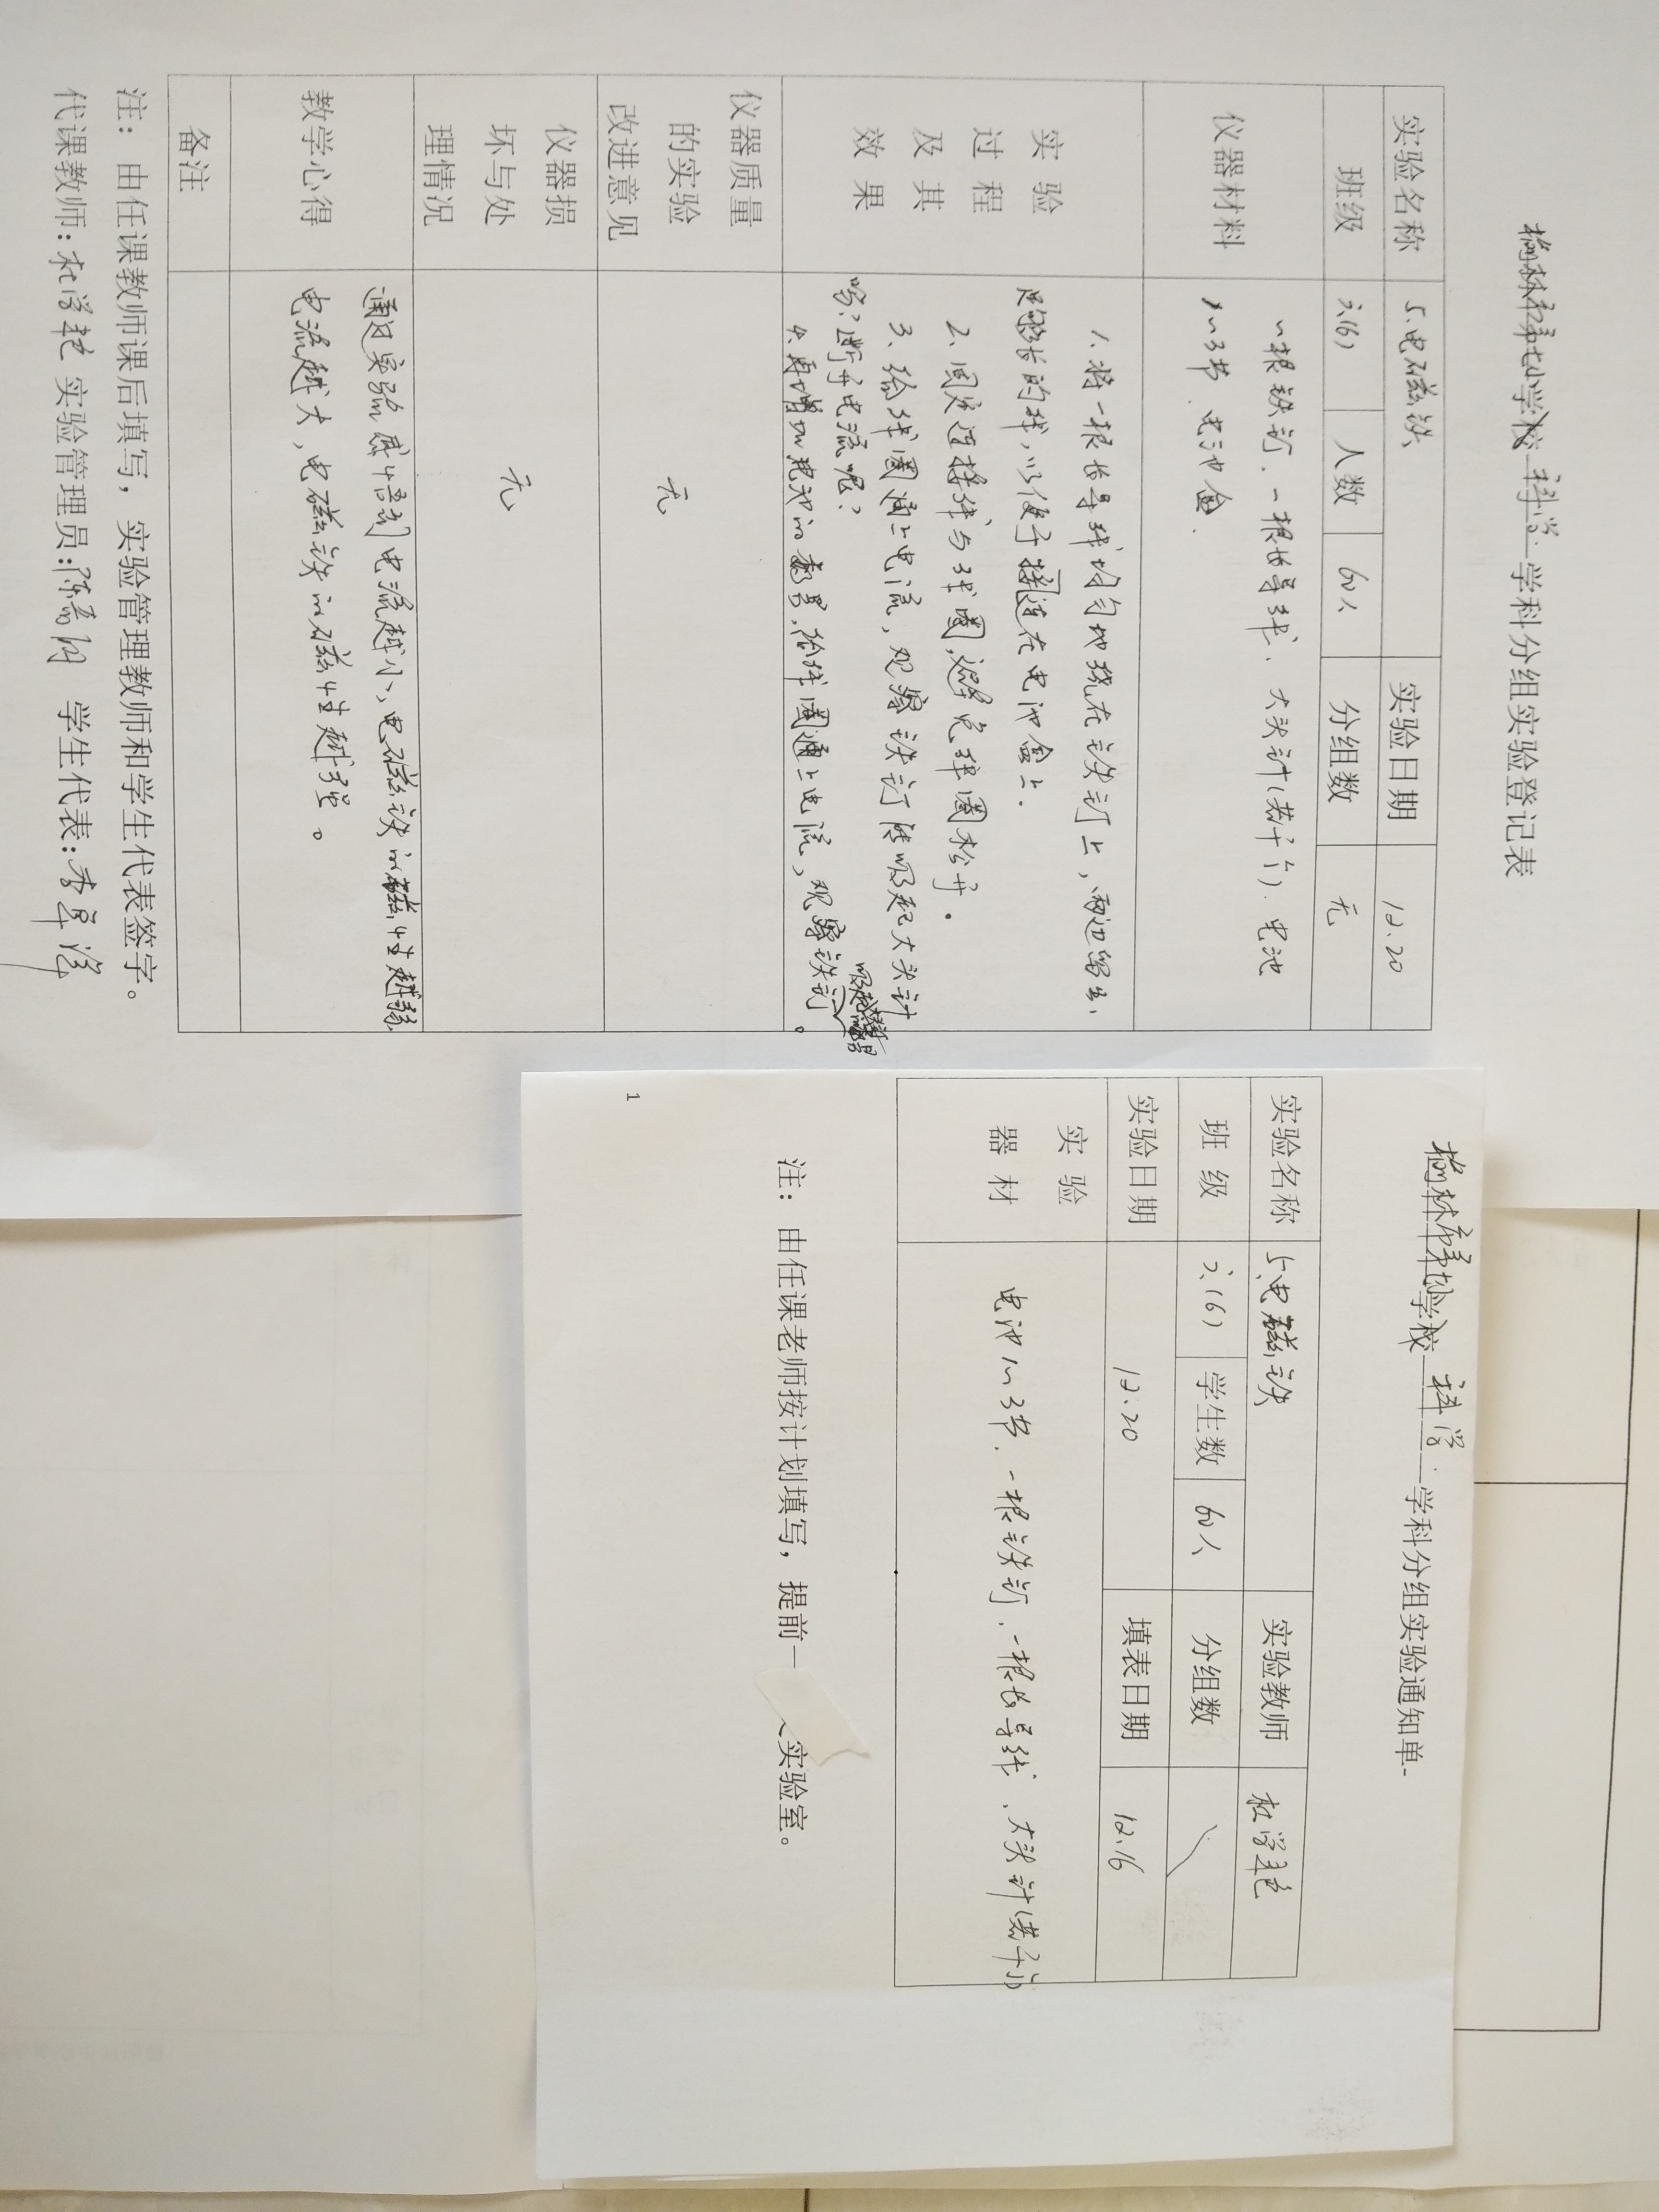 榆林市第七小学校 科学 学科分组实验登记表
实验名称 5、电磁铁 实验日期 12.20
班级 六、(6) 人数 60人 分组数 无
仪器材料 一根铁钉、一根长导线、大头针(若干个)、电池
1~3节、电池盒、
实验过程及其效果 1、将一根长导线均匀地绕在铁钉上，两边留出
足够长的线，以便于接连在电池盒上.
2、固定连接线与线圈，避免线圈松开.
3、给线圈通上电流，观察铁钉能吸起大头针
吗？断开电流呢？
4、再增加电池的数量，给线圈通上电流，观察铁钉
。
仪器质量的实验改进意见 无
仪器损坏与处理情况 无
教学心得 通过实验感悟到电流越小、电磁铁的磁性越弱
电流越大，电磁铁的磁性越强。
备注
注： 由任课教师课后填写， 实验管理教师和学生代表签字。
代课教师: 实验管理员: 学生代表:
榆林市第七小学校 科学 学科分组实验通知单-
实验名称 5、电磁铁 实验教师
班 级 六、(6) 学生数 60人 分组数
实验日期 12.20 填表日期 12.16
实验器材 电池1~3节、一根铁钉、一根长导线、大头针(若干个)
注： 由任课老师按计划填写，提前一
实验室。
1